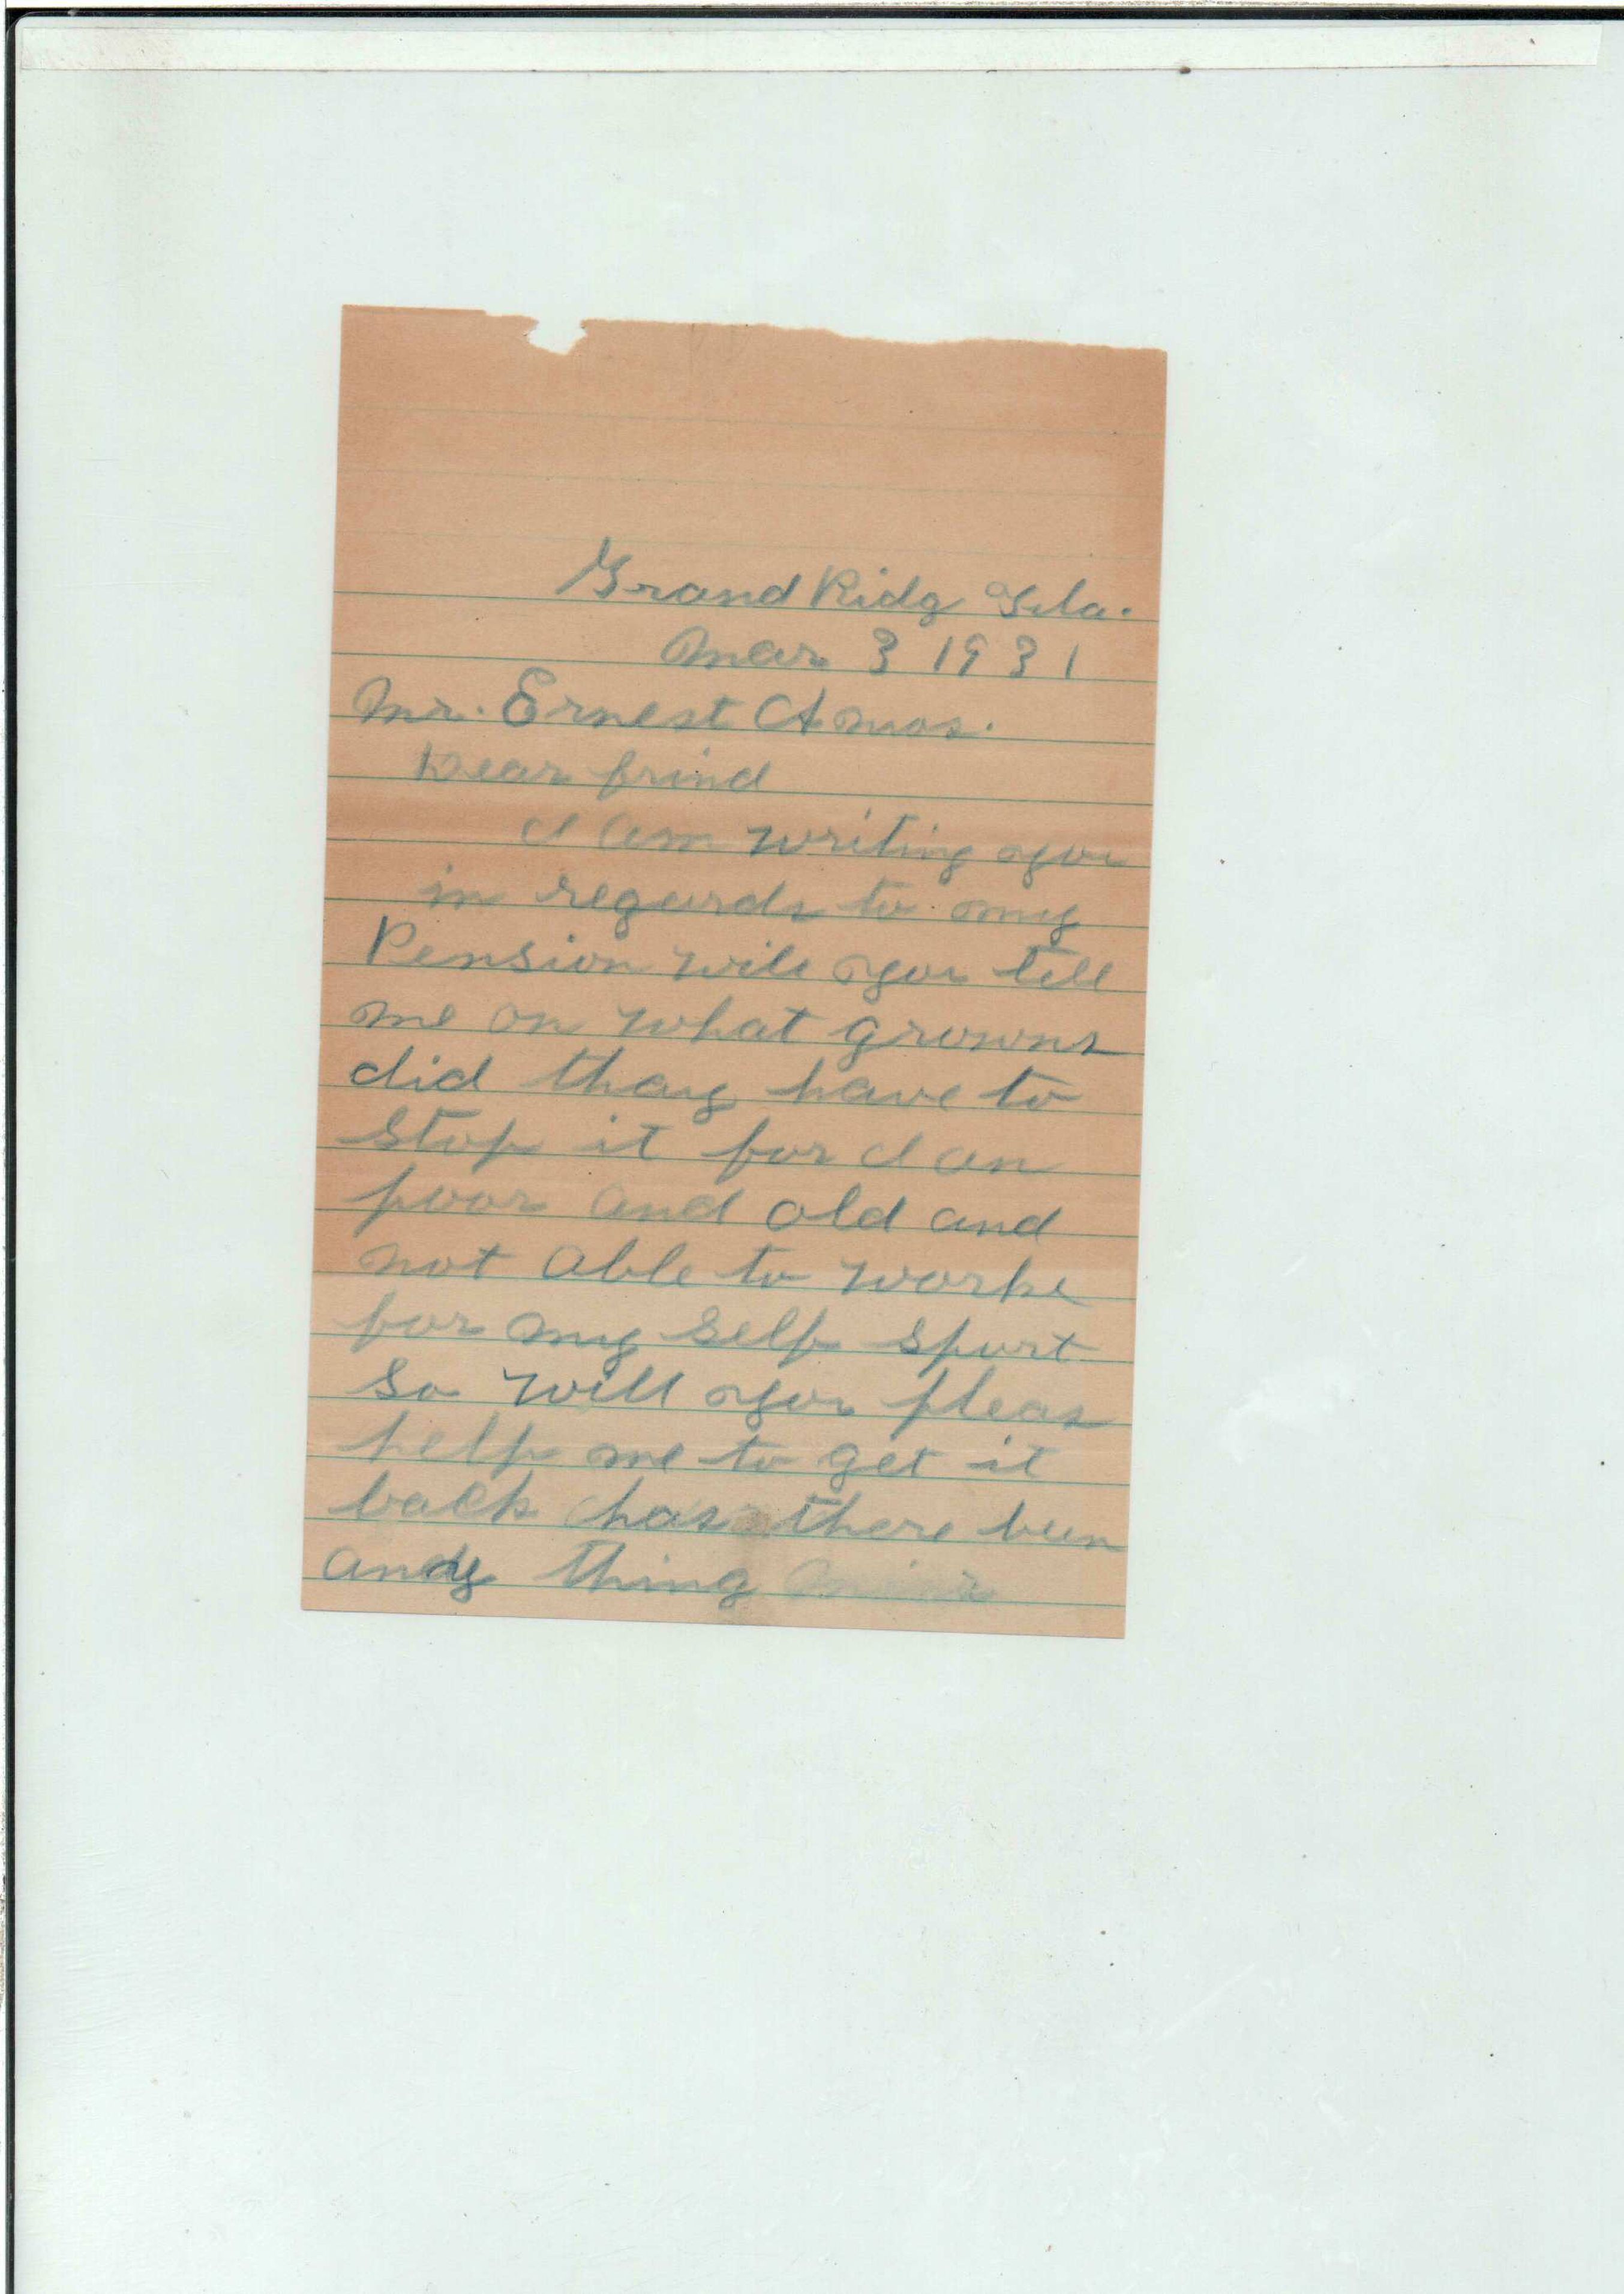 Grand Ridg Fla.
Mar 3 1931
Mr. Ernest Amos.
Dear frind
I am writing you
in regards to my
Pension will you tell
me on what growns
did thay have to
stop it for I an
poor and old and
not able to worke
for my self sport
so will you pleas
help me to get it
back has there bun
any thing